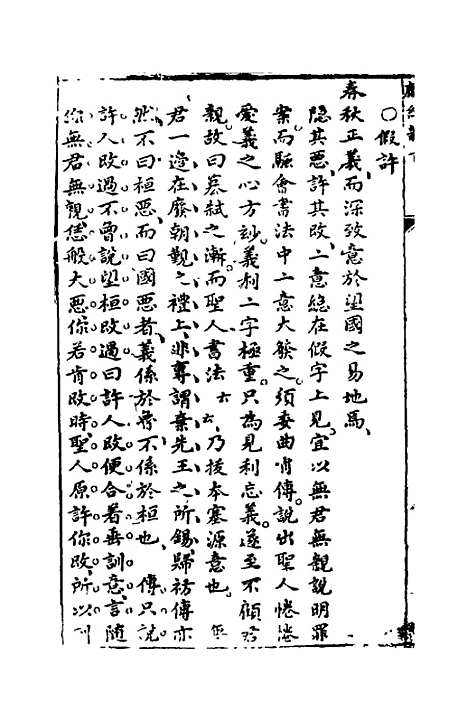 ○假許
春秋正義而深致意於望國之易地焉
隐其惡許其改二意總在假字上見宜以無君無親說明罪
案而驅會書法中二意大發之須委曲肖傳說出聖人惓惓
愛義之心方妙義利二字極重只為見利忘義遂至不顧君
親故曰簒弑之漸而聖人書法云云乃拔本塞源意也 無
君一邊在廢朝覲之禮上非専謂棄先王之所錫歸祊傳亦
然不曰桓惡而曰國惡者義係於魯不係於桓也 傳只說
許人改過不曽說望桓改過曰許人改便合着垂訓意言隨
你無君無親恁般大惡你若肯改時聖人原許你改所以